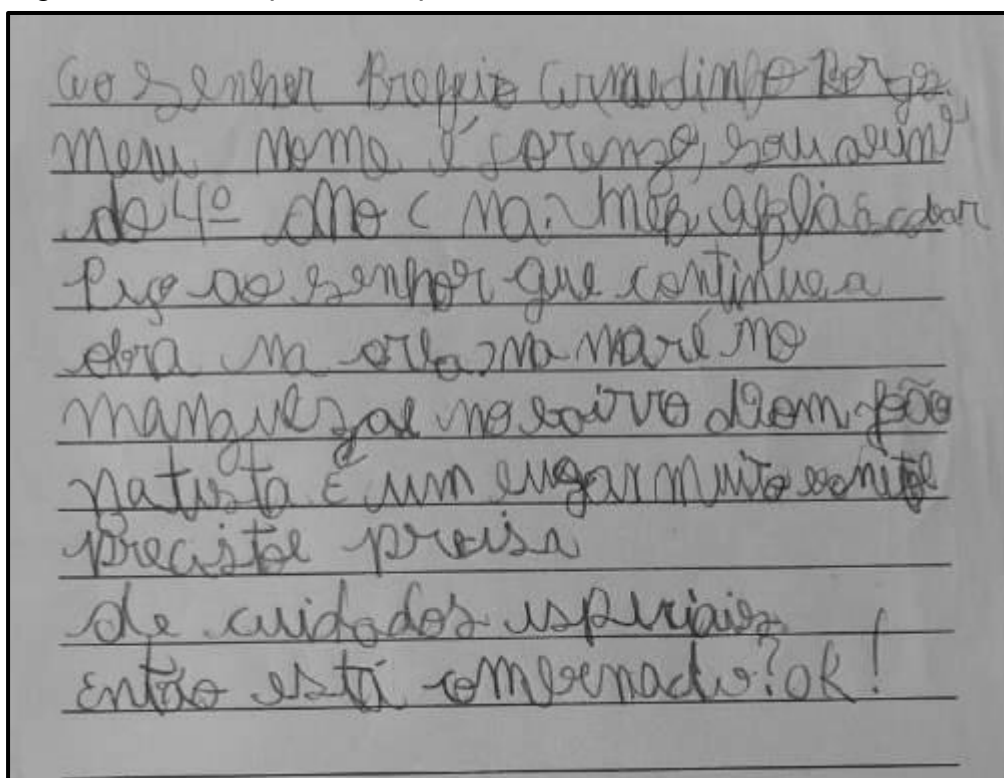 Ao Senhor Prefeito Armedimho Borges
meu nome é Lorenzo, sou alun
do 4º ano C
Peço ao senhor que continue a
obra na orla, na maré no
manguezal no bairro Dom João
Batista É um lugar muito bonito
precisa
de cuidados especiais
Então está combenado? ok!